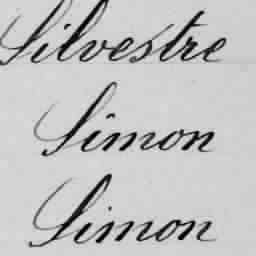 Silvestre
Simon
Simon